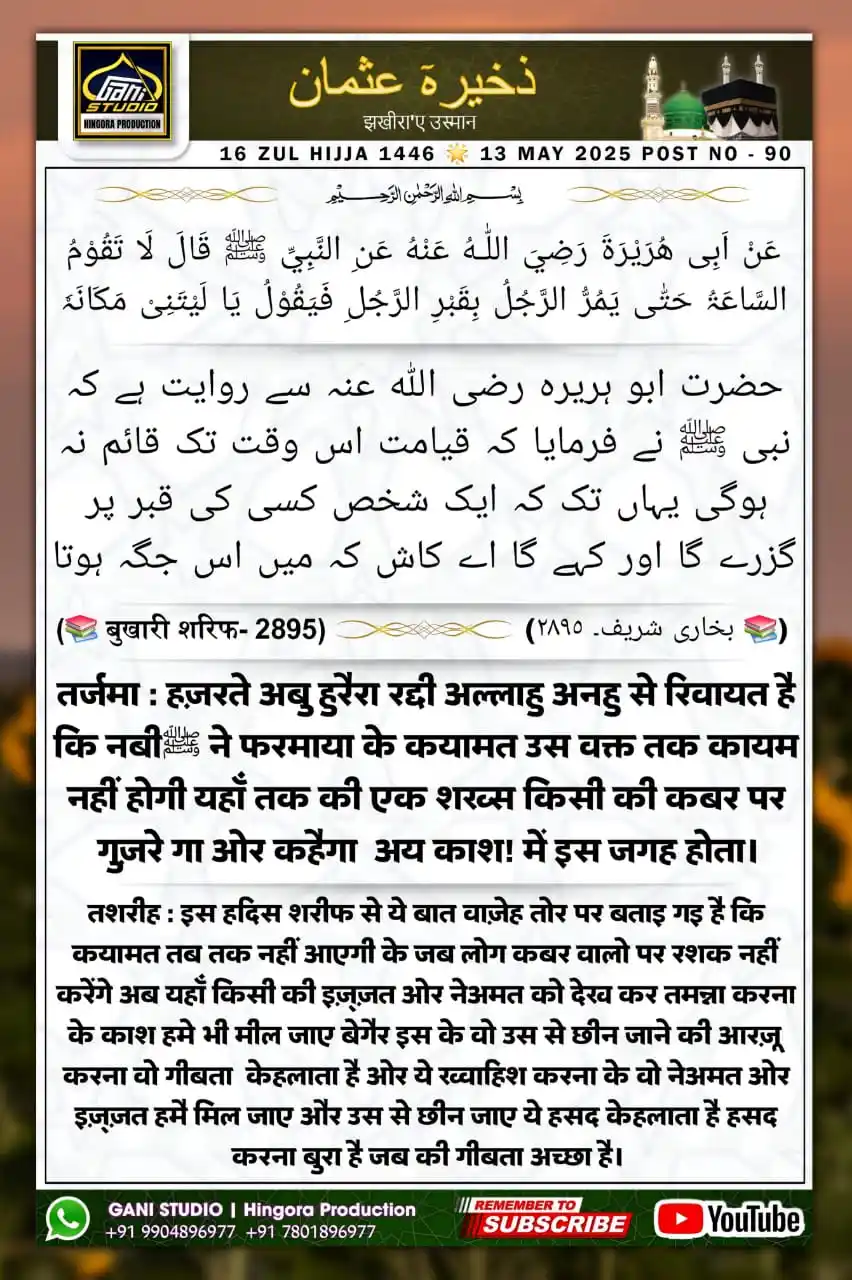 Gani
STUDIO
HINGORA PRODUCTION
ذخیرہَ عثمان
झखीरा'ए उस्मान
16 ZUL HIJJA 1446 🌟 13 MAY 2025 POST NO - 90
بِسْمِ اللهِ الرَّحْمٰنِ الرَّحِيْمِ
عَنْ اَبِی هُرَيْرَةَ رَضِيَ اللّٰهُ عَنْهُ عَنِ النَّبِيِّ ﷺ قَالَ لَا تَقُوْمُ
السَّاعَۃُ حَتّٰی يَمُرُّ الرَّجُلُ بِقَبْرِ الرَّجُلِ فَيَقُوْلُ يَا لَيْتَنِیْ مَکَانَہٗ
حضرت ابو ہریرہ رضی اللہ عنہ سے روایت ہے کہ
نبی ﷺ نے فرمایا کہ قیامت اس وقت تک قائم نہ
ہوگی یہاں تک کہ ایک شخص کسی کی قبر پر
گزرے گا اور کہے گا اے کاش کہ میں اس جگہ ہوتا
(📚 बुखारी शरिफ- 2895) (📚 بخاری شریف۔ ٢٨٩٥)
तर्जमा : हज़रते अबु हुरैरा रद्दी अल्लाहु अनहु से रिवायत है
कि नबीﷺ ने फरमाया के कयामत उस वक्त तक कायम
नहीं होगी यहाँ तक की एक शख्स किसी की कबर पर
गुज़रे गा ओर कहैगा अय काश! में इस जगह होता।
तशरीह : इस हदिस शरीफ से ये बात वाज़ेह तोर पर बताइ गइ है कि
कयामत तब तक नहीं आएगी के जब लोग कबर वालो पर रशक नहीं
करेंगे अब यहाँ किसी की इज़्ज़त ओर नेअमत को देख कर तमन्ना करना
के काश हमे भी मील जाए बेगैर इस के वो उस से छीन जाने की आरज़ू
करना वो गीबता केहलाता है ओर ये ख्वाहिश करना के वो नेअमत ओर
इज़्ज़त हमें मिल जाए और उस से छीन जाए ये हसद केहलाता है हसद
करना बुरा है जब की गीबता अच्छा है।
GANI STUDIO | Hingora Production
+91 9904896977 +91 7801896977
REMEMBER TO
SUBSCRIBE
YouTube